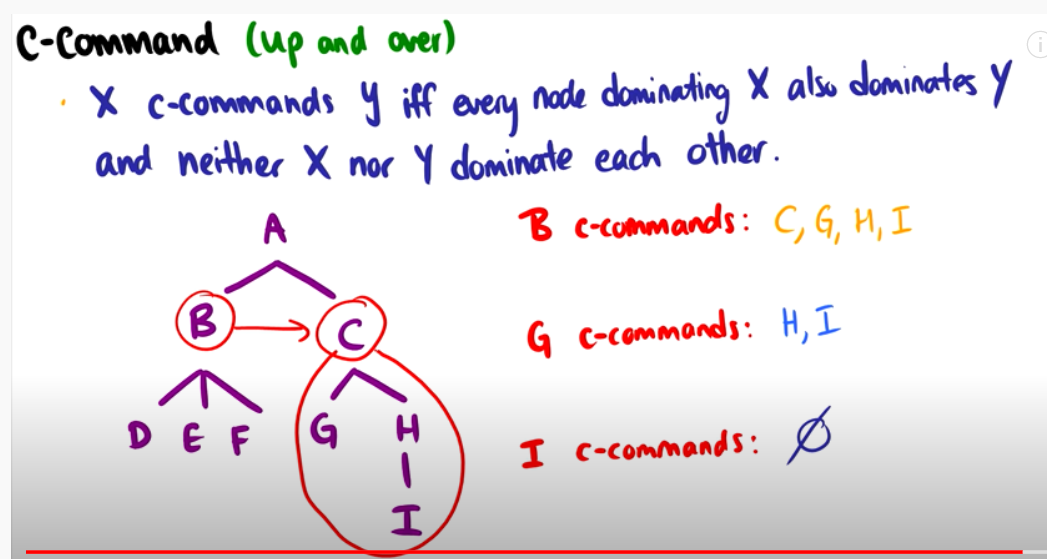 C-Command (up and over)
i
· X c-commands Y iff every node dominating X also dominates Y
and neither X nor Y dominate each other.
A
B c-commands: C, G, H, I
B
C
G c-commands: H, I
D E F G H
I c-commands: Ø
I